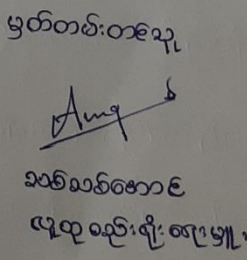 မှတ်တမ်းတင်သူ
Aung
သစ်သစ်အောင်
လူထုစည်းရုံးရေးမှူး